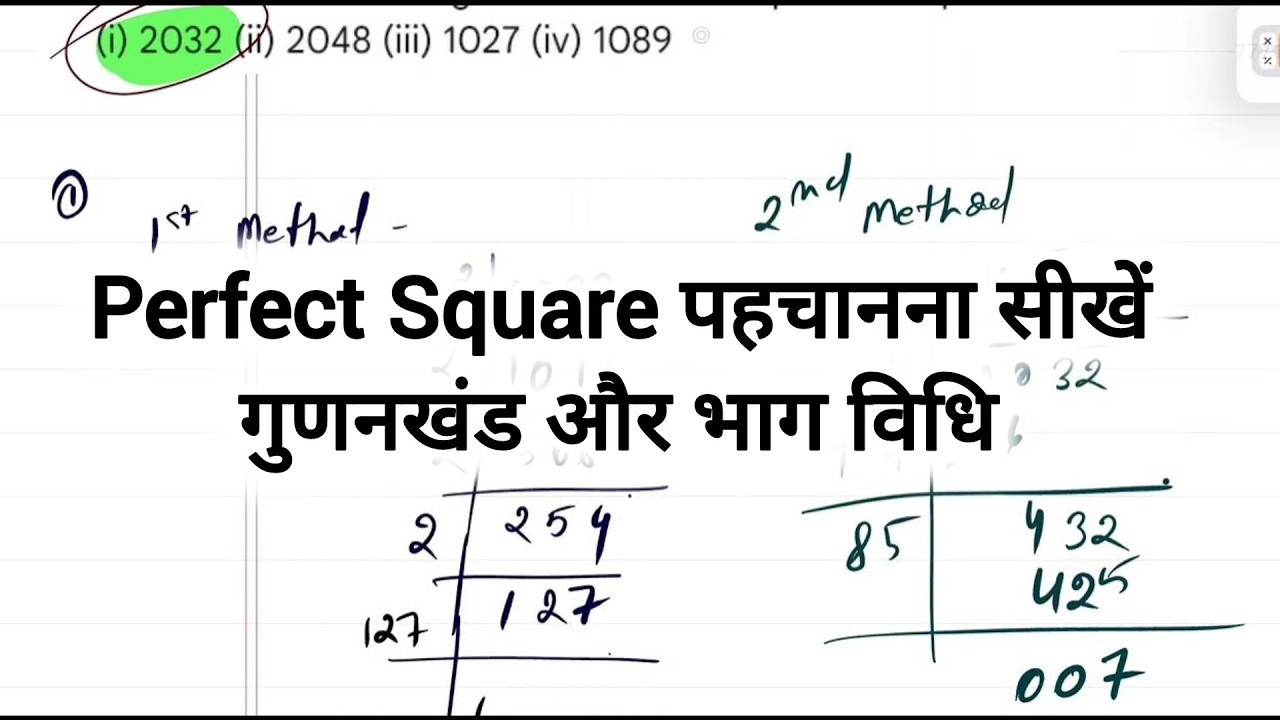 (i) 2032 (ii) 2048 (iii) 1027 (iv) 1089
① 1st Method -
2nd Method
Perfect Square पहचानना सीखें
32
गुणनखंड और भाग विधि
2 254
127 127
1
85 432
425
007